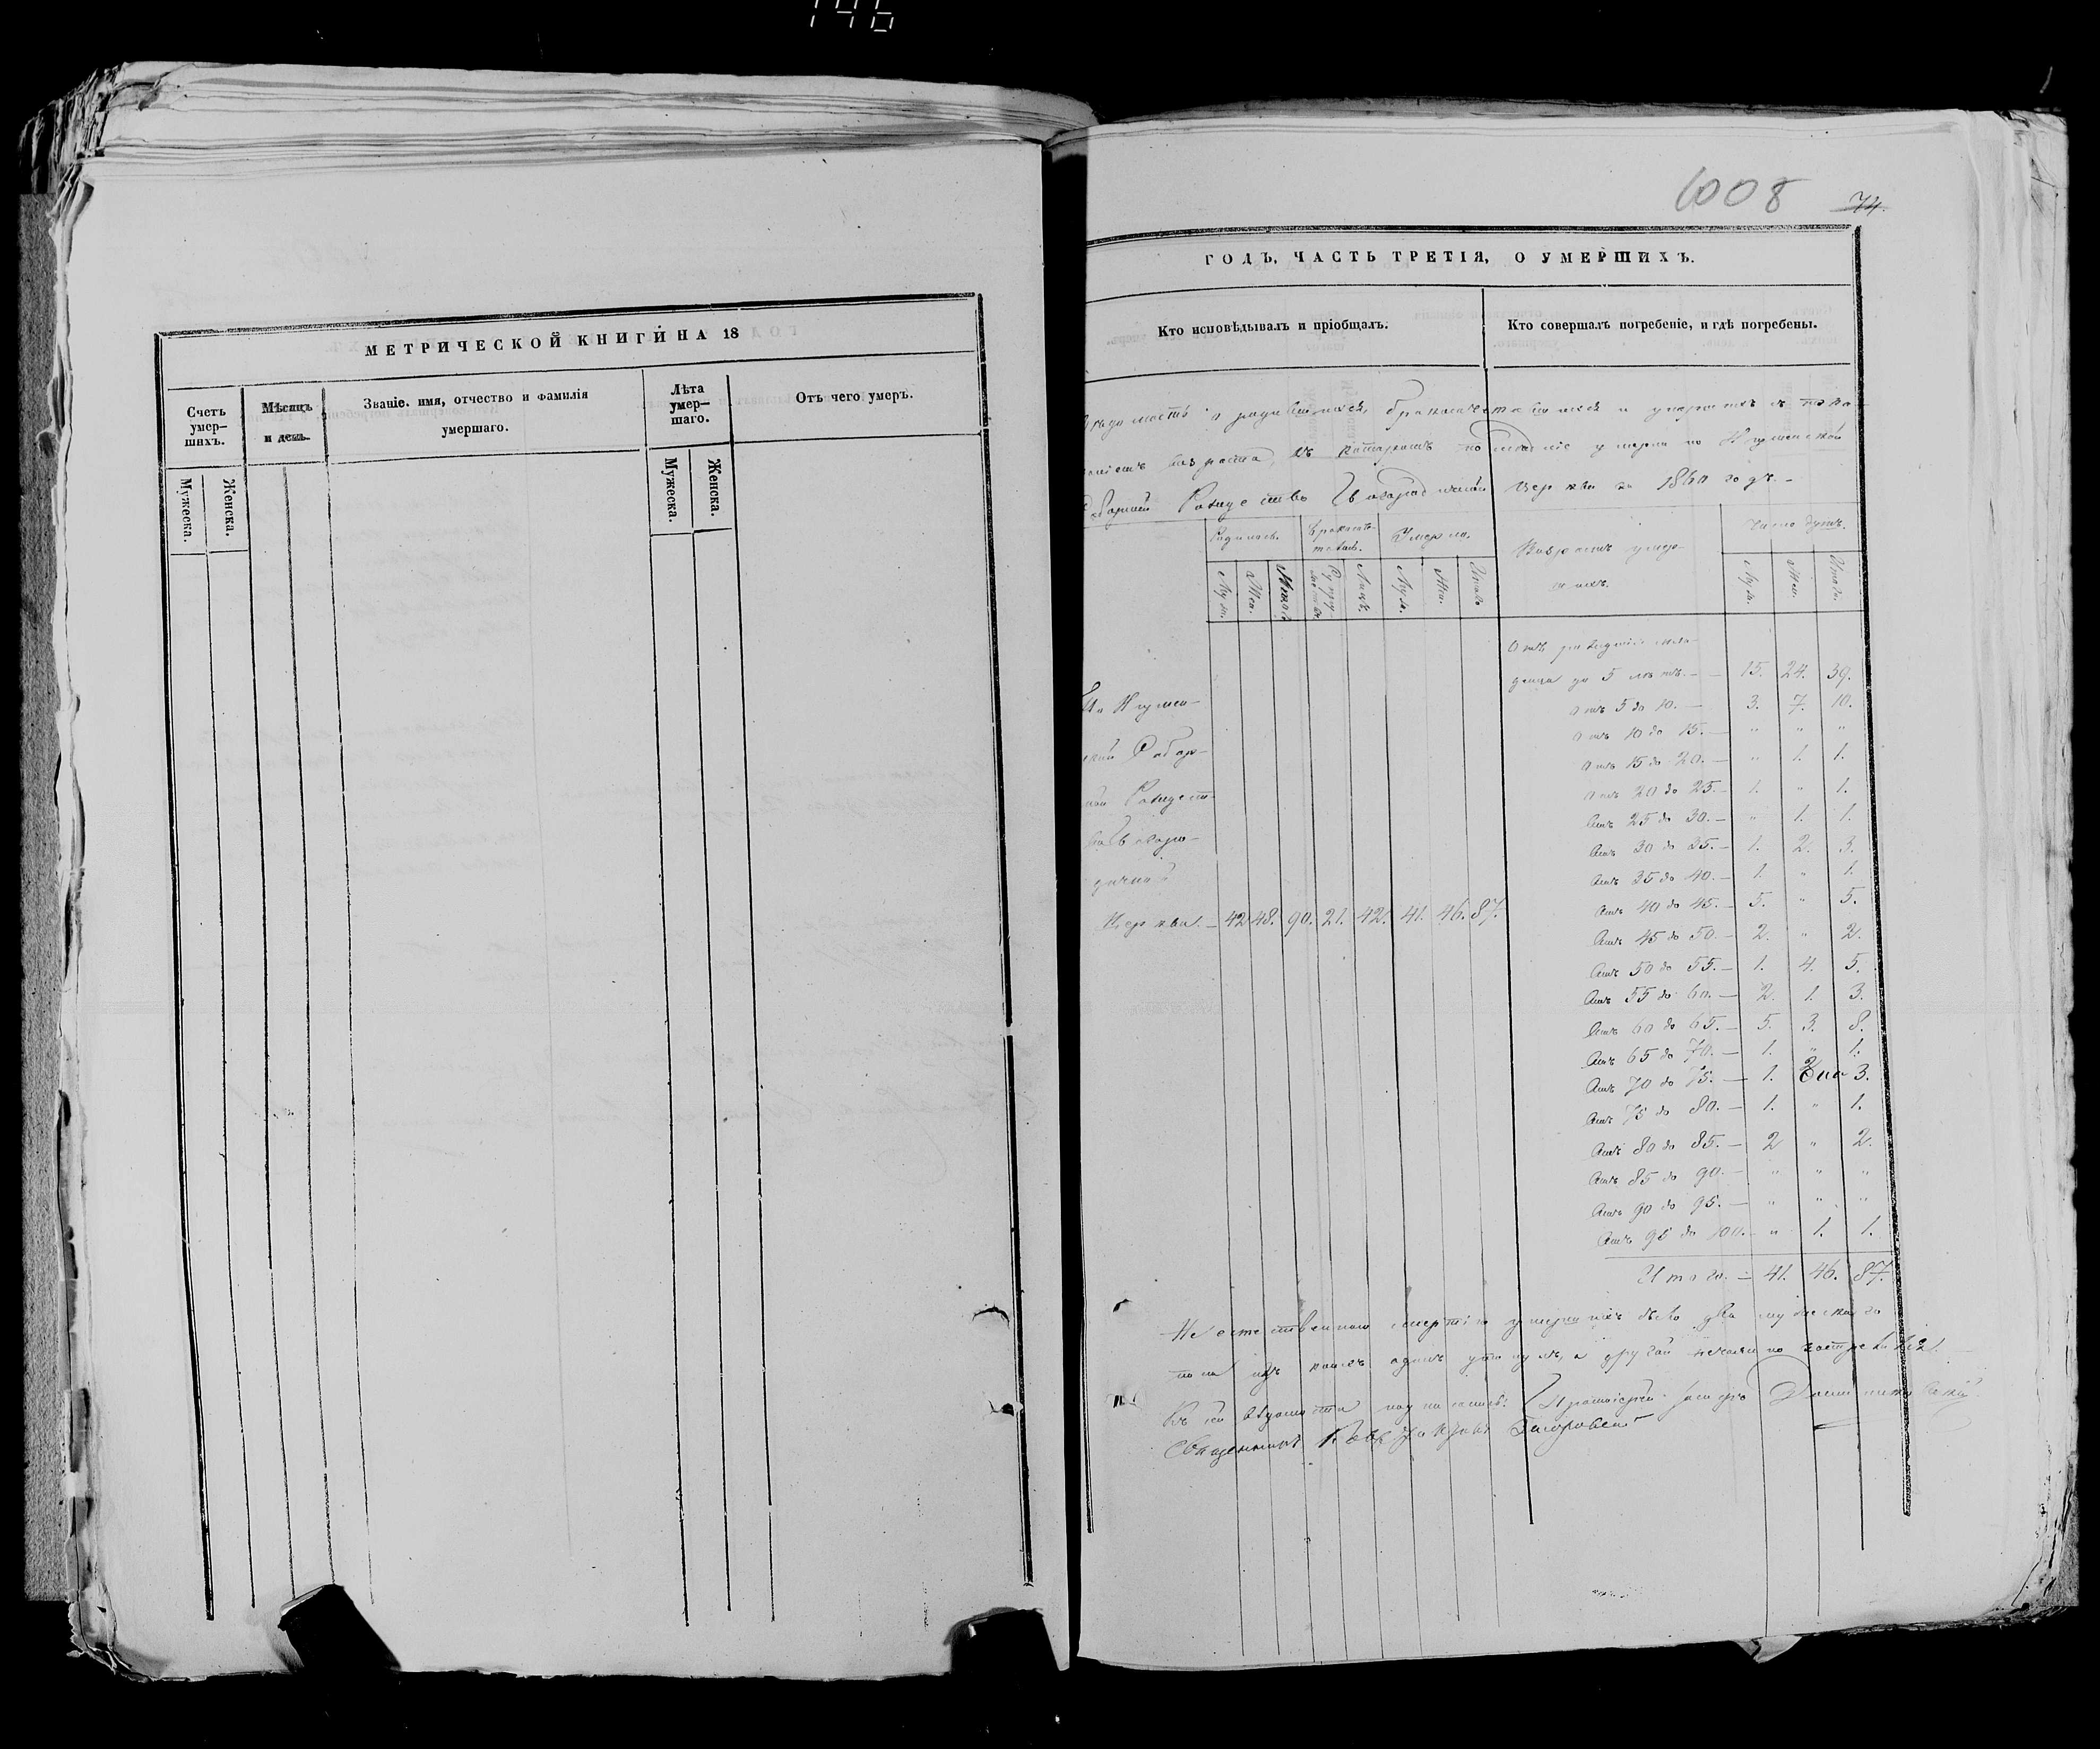 146
МЕТРИЧЕСКОЙ КНИГИ НА 18
Счетъ умер-шихъ.
Мужеска.
Женска.
Мѣсяцъ и день.
Званіе, имя, отчество и фамилія умершаго.
Лѣта умер-шаго.
Мужеска.
Женска.
Отъ чего умеръ.
1008 74.
ГОДЪ, ЧАСТЬ ТРЕТІЯ, О УМЕРШИХЪ.
Кто исповѣдывалъ и пріобщалъ.
Кто совершалъ погребеніе, и гдѣ погребены.
о родившихся, бракосочетавшихся и умершихъ съ пока-
возраста, въ которомъ послѣдніе умерли по
Рождество Богородичной Церкви за 1860 годъ.-
Родилось.
Бракосоче-тавш.
Умерло.
Возрастъ умер-шихъ.
Число душъ.
Муж. Жен. Итого
Лицъ. Муж. Жен. Итого
Муж. Жен. Итого.
Отъ рожденія мла-
денца до 5 лѣтъ.- 15. 24. 39.
Отъ 5 до 10.- 3. 7. 10.
Отъ 10 до 15.- " " "
Отъ 15 до 20.- " 1. 1.
Отъ 20 до 25.- 1. " 1.
Отъ 25 до 30.- " 1. 1.
Отъ 30 до 35.- 1. 2. 3.
Отъ 35 до 40.- 1. " 1.
Отъ 40 до 45.- 5. " 5.
Отъ 45 до 50.- 2. " 2.
Отъ 50 до 55.- 1. 4. 5.
Отъ 55 до 60.- 2. 1. 3.
Отъ 60 до 65.- 5. 3. 8.
Отъ 65 до 70.- 1. " 1.
Отъ 70 до 75.- 1. 2 3.
Отъ 75 до 80.- 1. " 1.
Отъ 80 до 85.- 2 " 2.
Отъ 85 до 90.- " " "
Отъ 90 до 95.- " " "
Отъ 95 до 100.- " 1. 1.
Итого.- 41. 46. 87.
Собор-
ной Рождест-
Богоро-
дичной
Церкви.- 42 48. 90. 21. 42. 41. 46. 87.
Не естественною смертію умершихъ было два мужеска го
пола изъ коихъ одинъ утонулъ, а другой нечаянно застрелился.
Къ сей вѣдомости подписались: Протоіерей
Священникъ